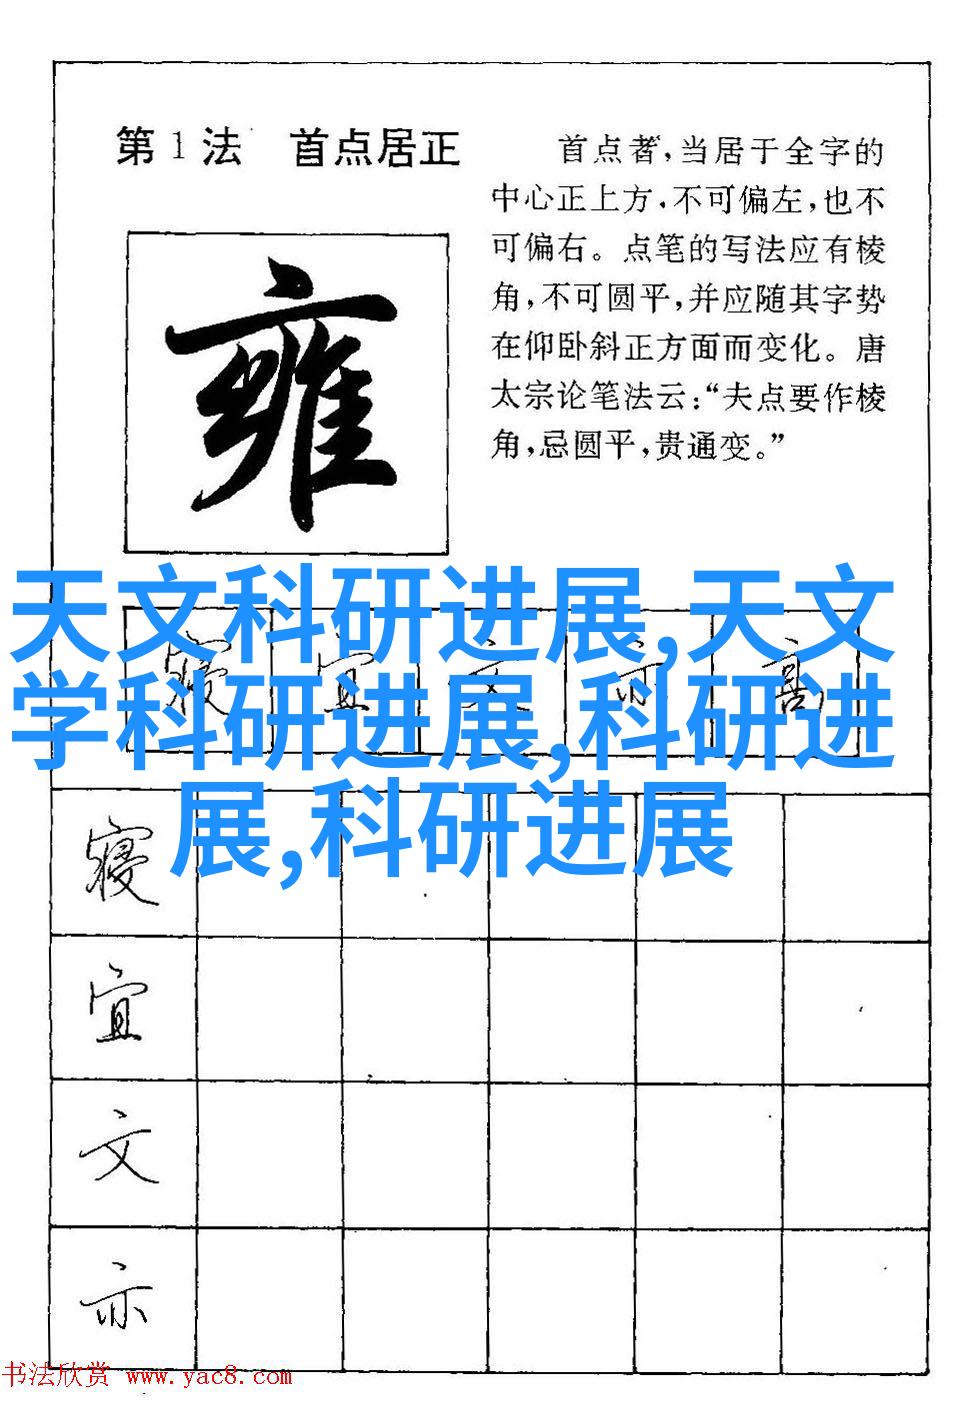 第1法 首点居正
首点著，当居于全字的
中心正上方，不可偏左，也不
可偏右。点笔的写法应有棱
角，不可圆平，并应随其字势
在仰卧斜正方面而变化。唐
太宗论笔法云：“夫点要作棱
角，忌圆平，贵通变。”
雍
天文科研进展,天文
学科研进展,科研进
展,科研进展
寝 宜 文 亦 高
寝
宜
文
亦
书法欣赏 www.yac8.com